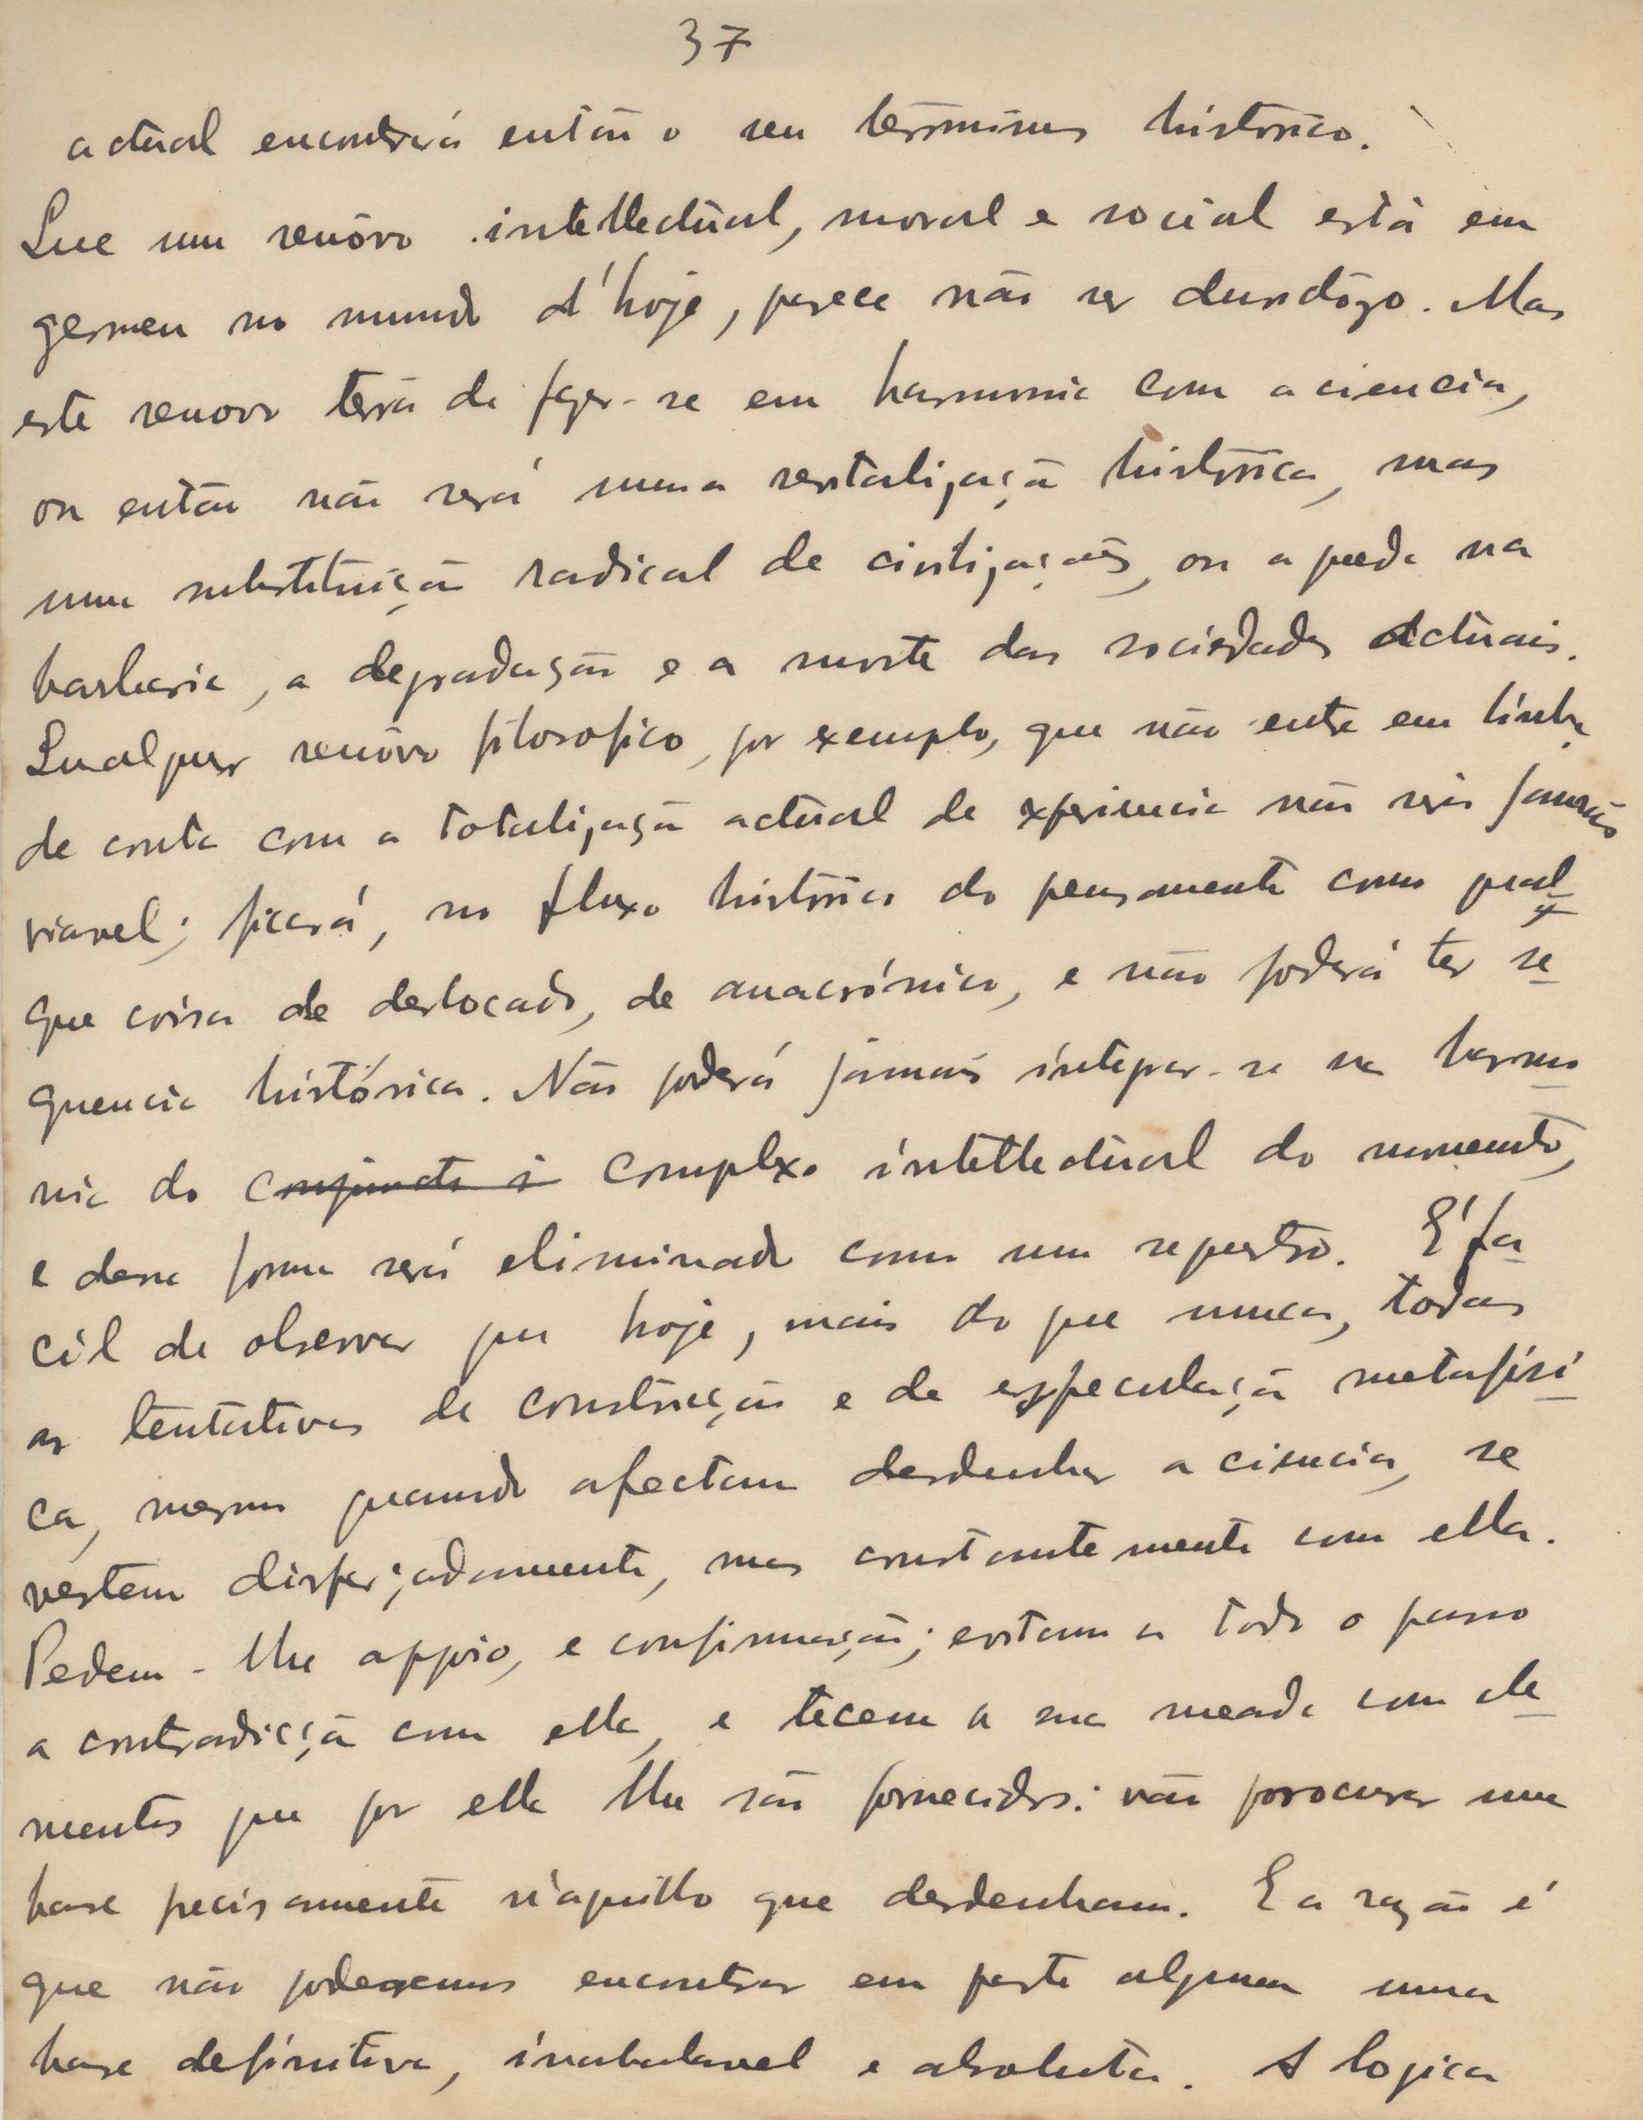 37
actual encontrará então o seu términus histórico.
Que um renôvo intellectual, moral e social está em
germen no mundo d'hoje, parece não ser duvidôzo. Mas
este renovo terá de fazer-se em harmonia com a ciencia,
ou então não será numa revitalização histórica, mas
uma substituição radical de civilizações, ou a queda na
barbarie, a degradação e a morte das sociedades actuais.
Qualquer renôvo filosofico, por exemplo, que não entre em linha
de conta com a totalização actual de experiencia não será jamais
viavel; ficará, no fluxo histórico do pensamento como qual
que coisa de deslocado, de anacrónico, e não poderá ter se
quencia histórica. Não poderá jamais integrar-se na harmo
nia do conjuncto i complexo intellectual do momento,
e dessa forma será eliminado como um sequestro. E' fa
cil de observar que hoje, mais do que nunca, todas
as tentativas de construcção e de especulação metafisi
ca, mesmo quando afectam desdenhar a ciencia, se
vestem disfarçadamente, mas constantemente com ella.
Pedem-lhe appoio, e confirmação; evitam a todo o passo
a contradicção com ella, e tecem a sua meada com ele
mentos que por ella lhe são fornecidos: vão procurar uma
base precisamente n'aquillo que desdenham. E a razão é
que não podemos encontrar em parte alguma uma
base definitiva, inabalavel e absoluta. A logica